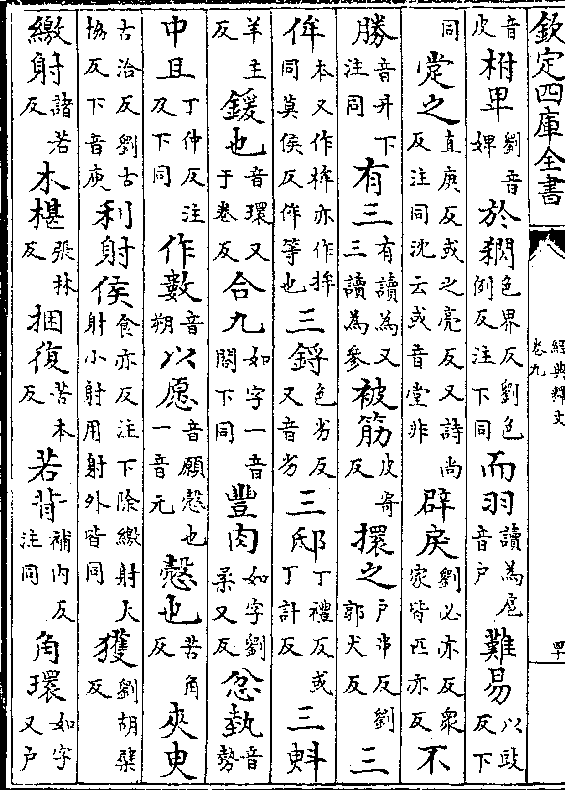 欽定四庫全書
經典釋文
卷九
音皮柎卑劉音婢於閷色界反劉色例反注下同而羽讀為扈音戶難易以豉反下
同䟫之直庚反或之亮反又詩尚反注同沈云或音堂非辟戾劉必亦反眾家皆匹亦反不
勝音升下注同有三有讀為又三讀為參被筋皮寄反擐之戶串反劉郭犬反三
侔本又作桙亦作牟同莫侯反侔等也三鋝色劣反又音劣三邸丁禮反或丁計反三斞
羊主反鍰也音環又于卷反合九如字一音閤下同豐肉如字劉柔又反忿埶音勢
中且丁仲反注及下同作數音朔以愿音願愨也一音元愨也苦角反夾臾
古洽反劉古協反下音庾利射侯食亦反注下除繳射大射小射用射外皆同獲劉胡蘗反
繳射諸若反木椹張林反捆復苦本反若背補內反注同角環如字又戶